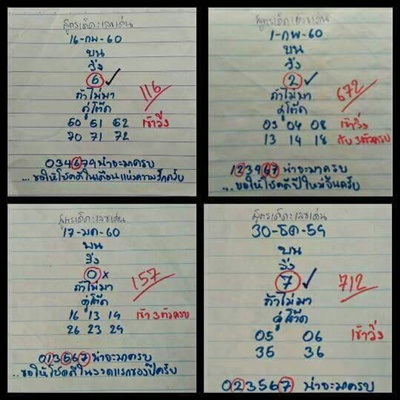 สูตรเด็ดเลขเด่น
16-กพ-60
บน
วิ่ง
6 ✓
116
ถ้าไม่มา
คู่โต๊ด
60 61 62 เข้าวิ่ง
70 71 72
034679 น่าจะมาครบ
...ขอให้โชคดีในเดือนแห่งความรักครับ
1-กพ-60
บน
วิ่ง
2 ✓
672
ถ้าไม่มา
คู่โต๊ด
03 04 08 เข้าวิ่ง
13 14 18 กับ 3 ตัวครบ
123467 น่าจะมาครบ
สูตรเด็ดเลขเด่น
17-มค-60
บน
วิ่ง
0 x
157
ถ้าไม่มา
คู่โต๊ด
16 13 19 เข้า 3 ตัวครบ
26 23 29
013567 น่าจะมาครบ
ขอให้โชคดีในงวดแรกของปีครับ
สูตรเด็ดเลขเด่น
30-ธค-59
บน
วิ่ง
7 ✓
712
ถ้าไม่มา
คู่โต๊ด
05 06 เข้าวิ่ง
35 36
023567 น่าจะมาครบ